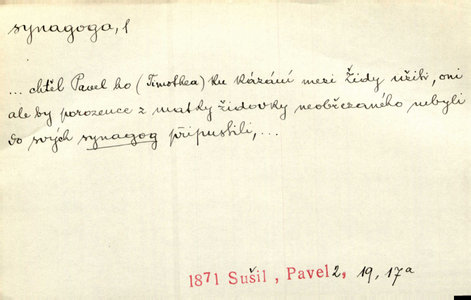 synagoga, f
... chtěl Pavel ho (Timothea) ku kázání mezi Židy užiti, oni
ale by porozence z matky židovky neobřezaného nebyli
do svých synagog připustili, ...
1871 Sušil, Pavel 2, 19, 17a